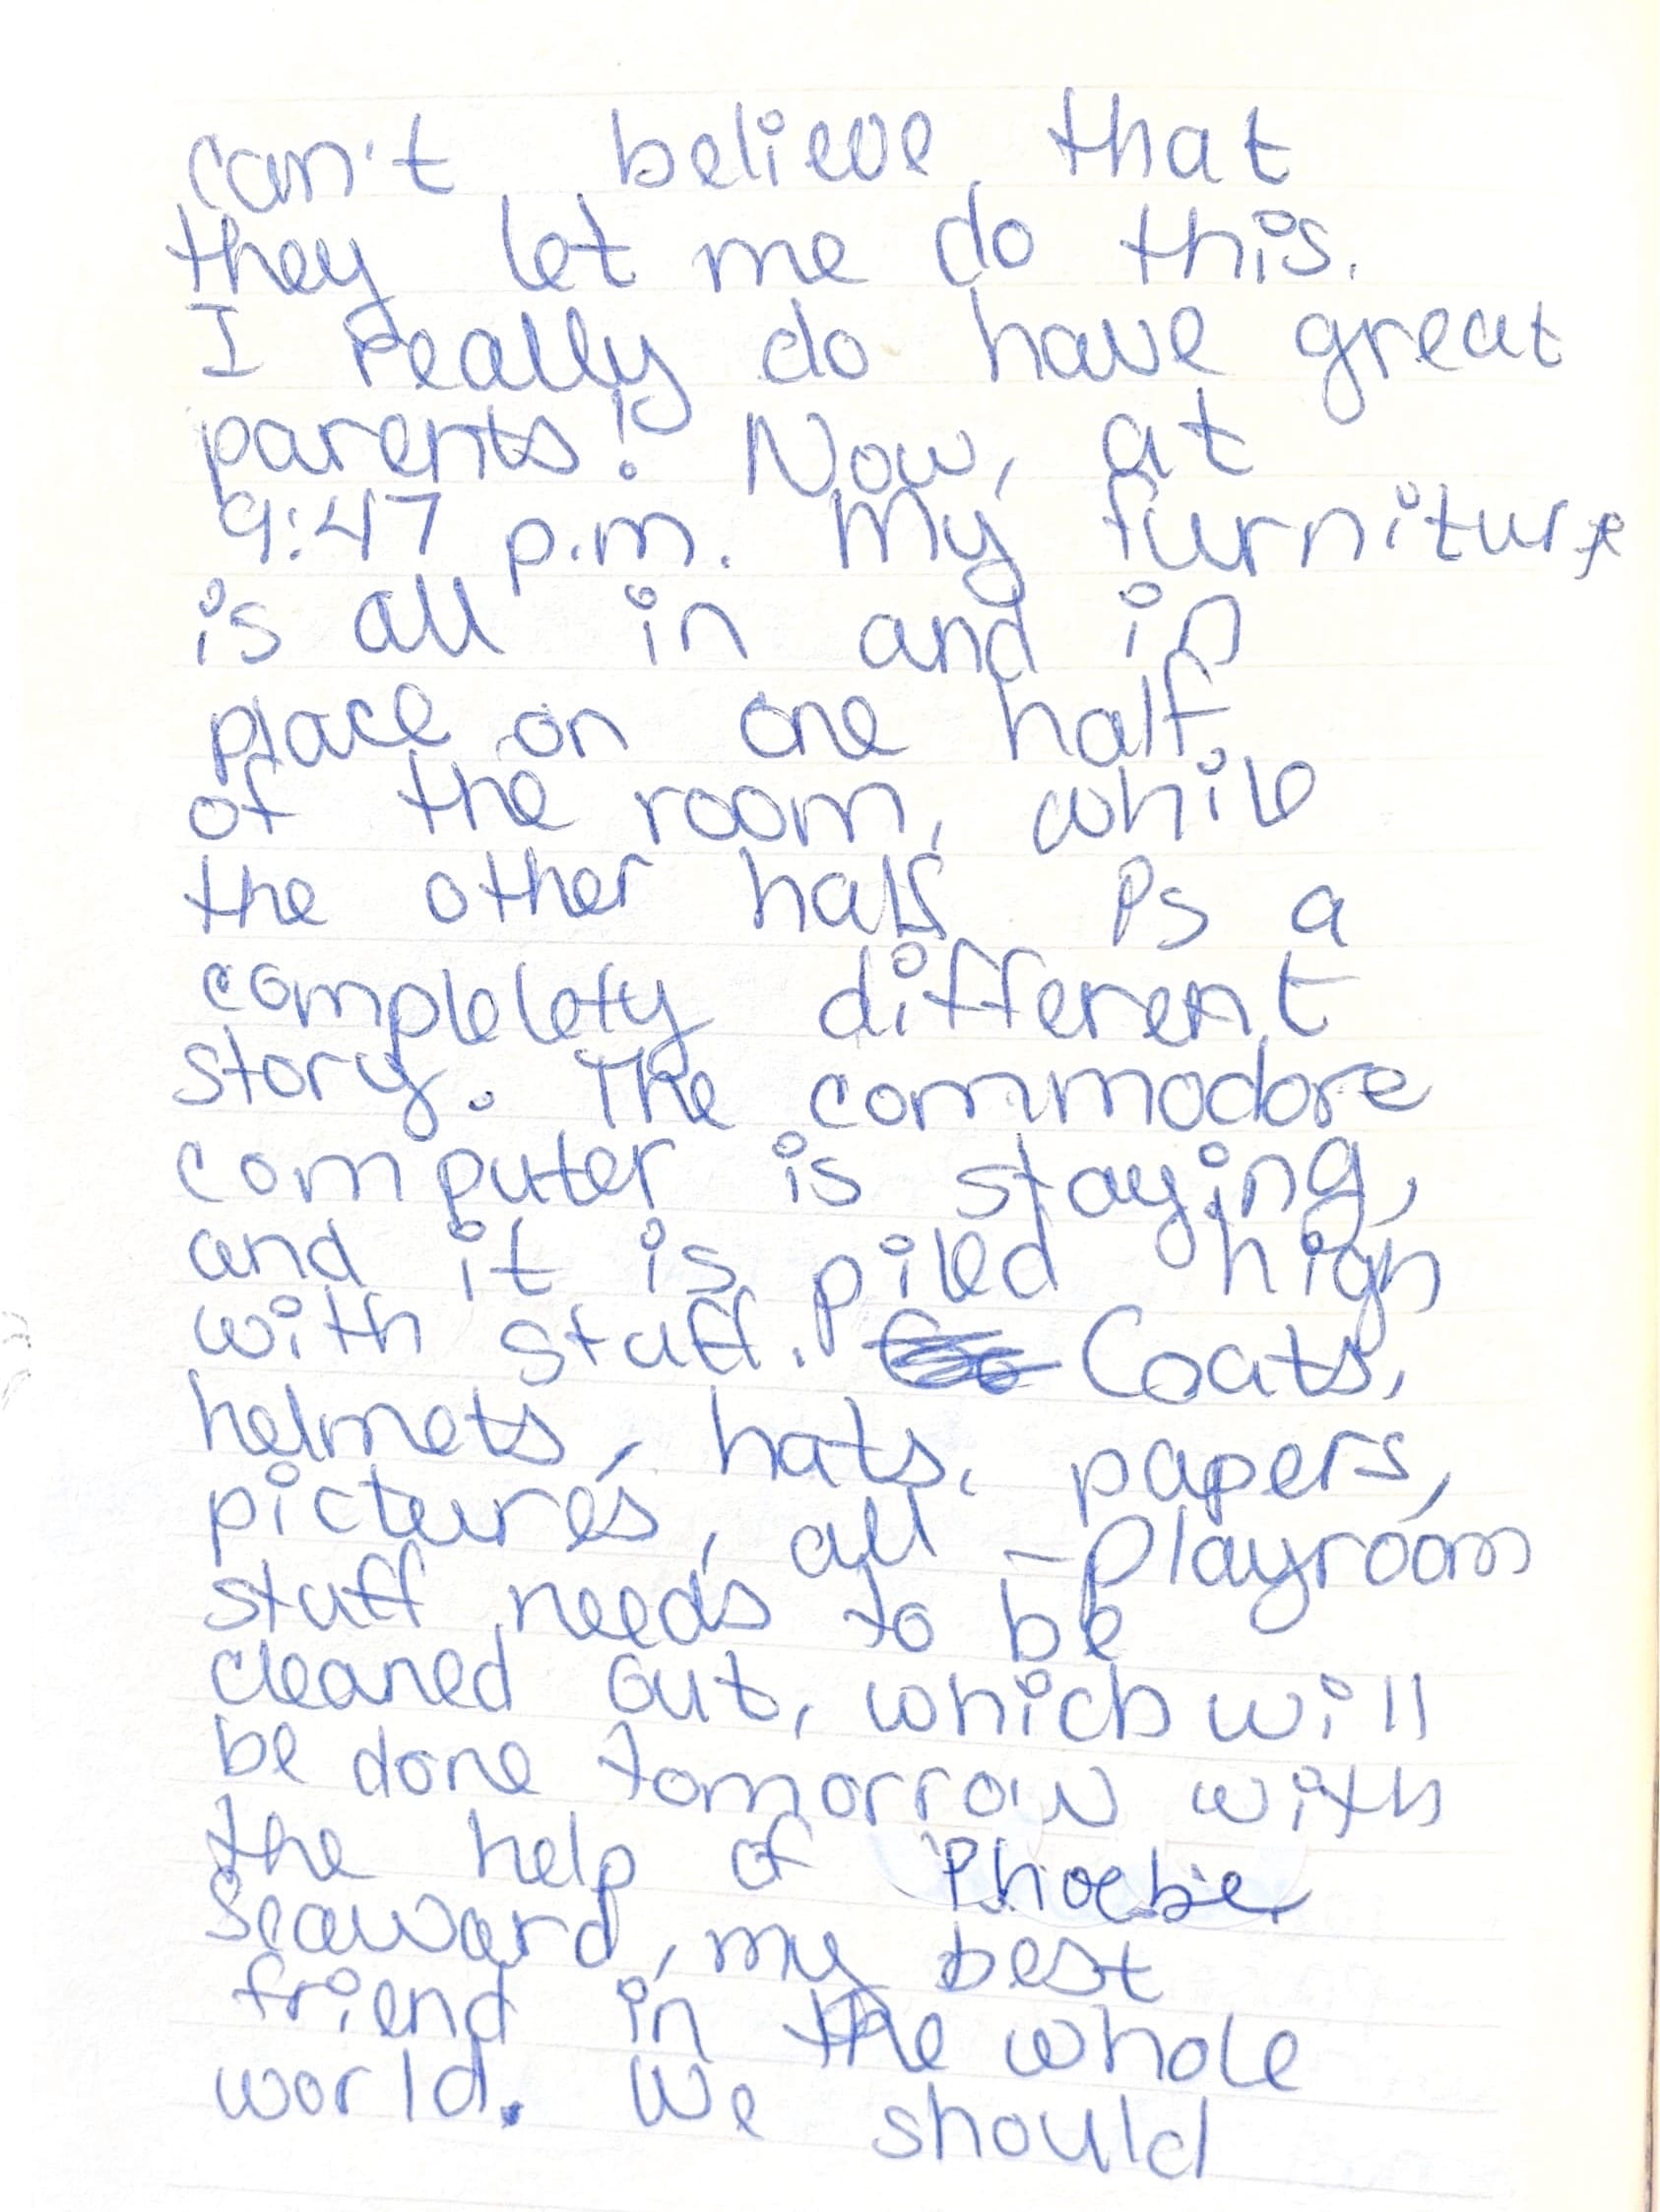 can't believe that
they let me do this.
I really do have great
parents! Now, at
9:47 p.m. my furniture
is all in and in
place on one half
of the room, while
the other half is a
completety different
story. The commodore
computer is staying,
and it is piled high
with stuff. Coats,
helmets, hats, papers,
pictures, all playroom
stuff needs to be
cleaned out, which will
be done tomorrow with
the help of Phoebe
Seaward, my best
friend in the whole
world. We should